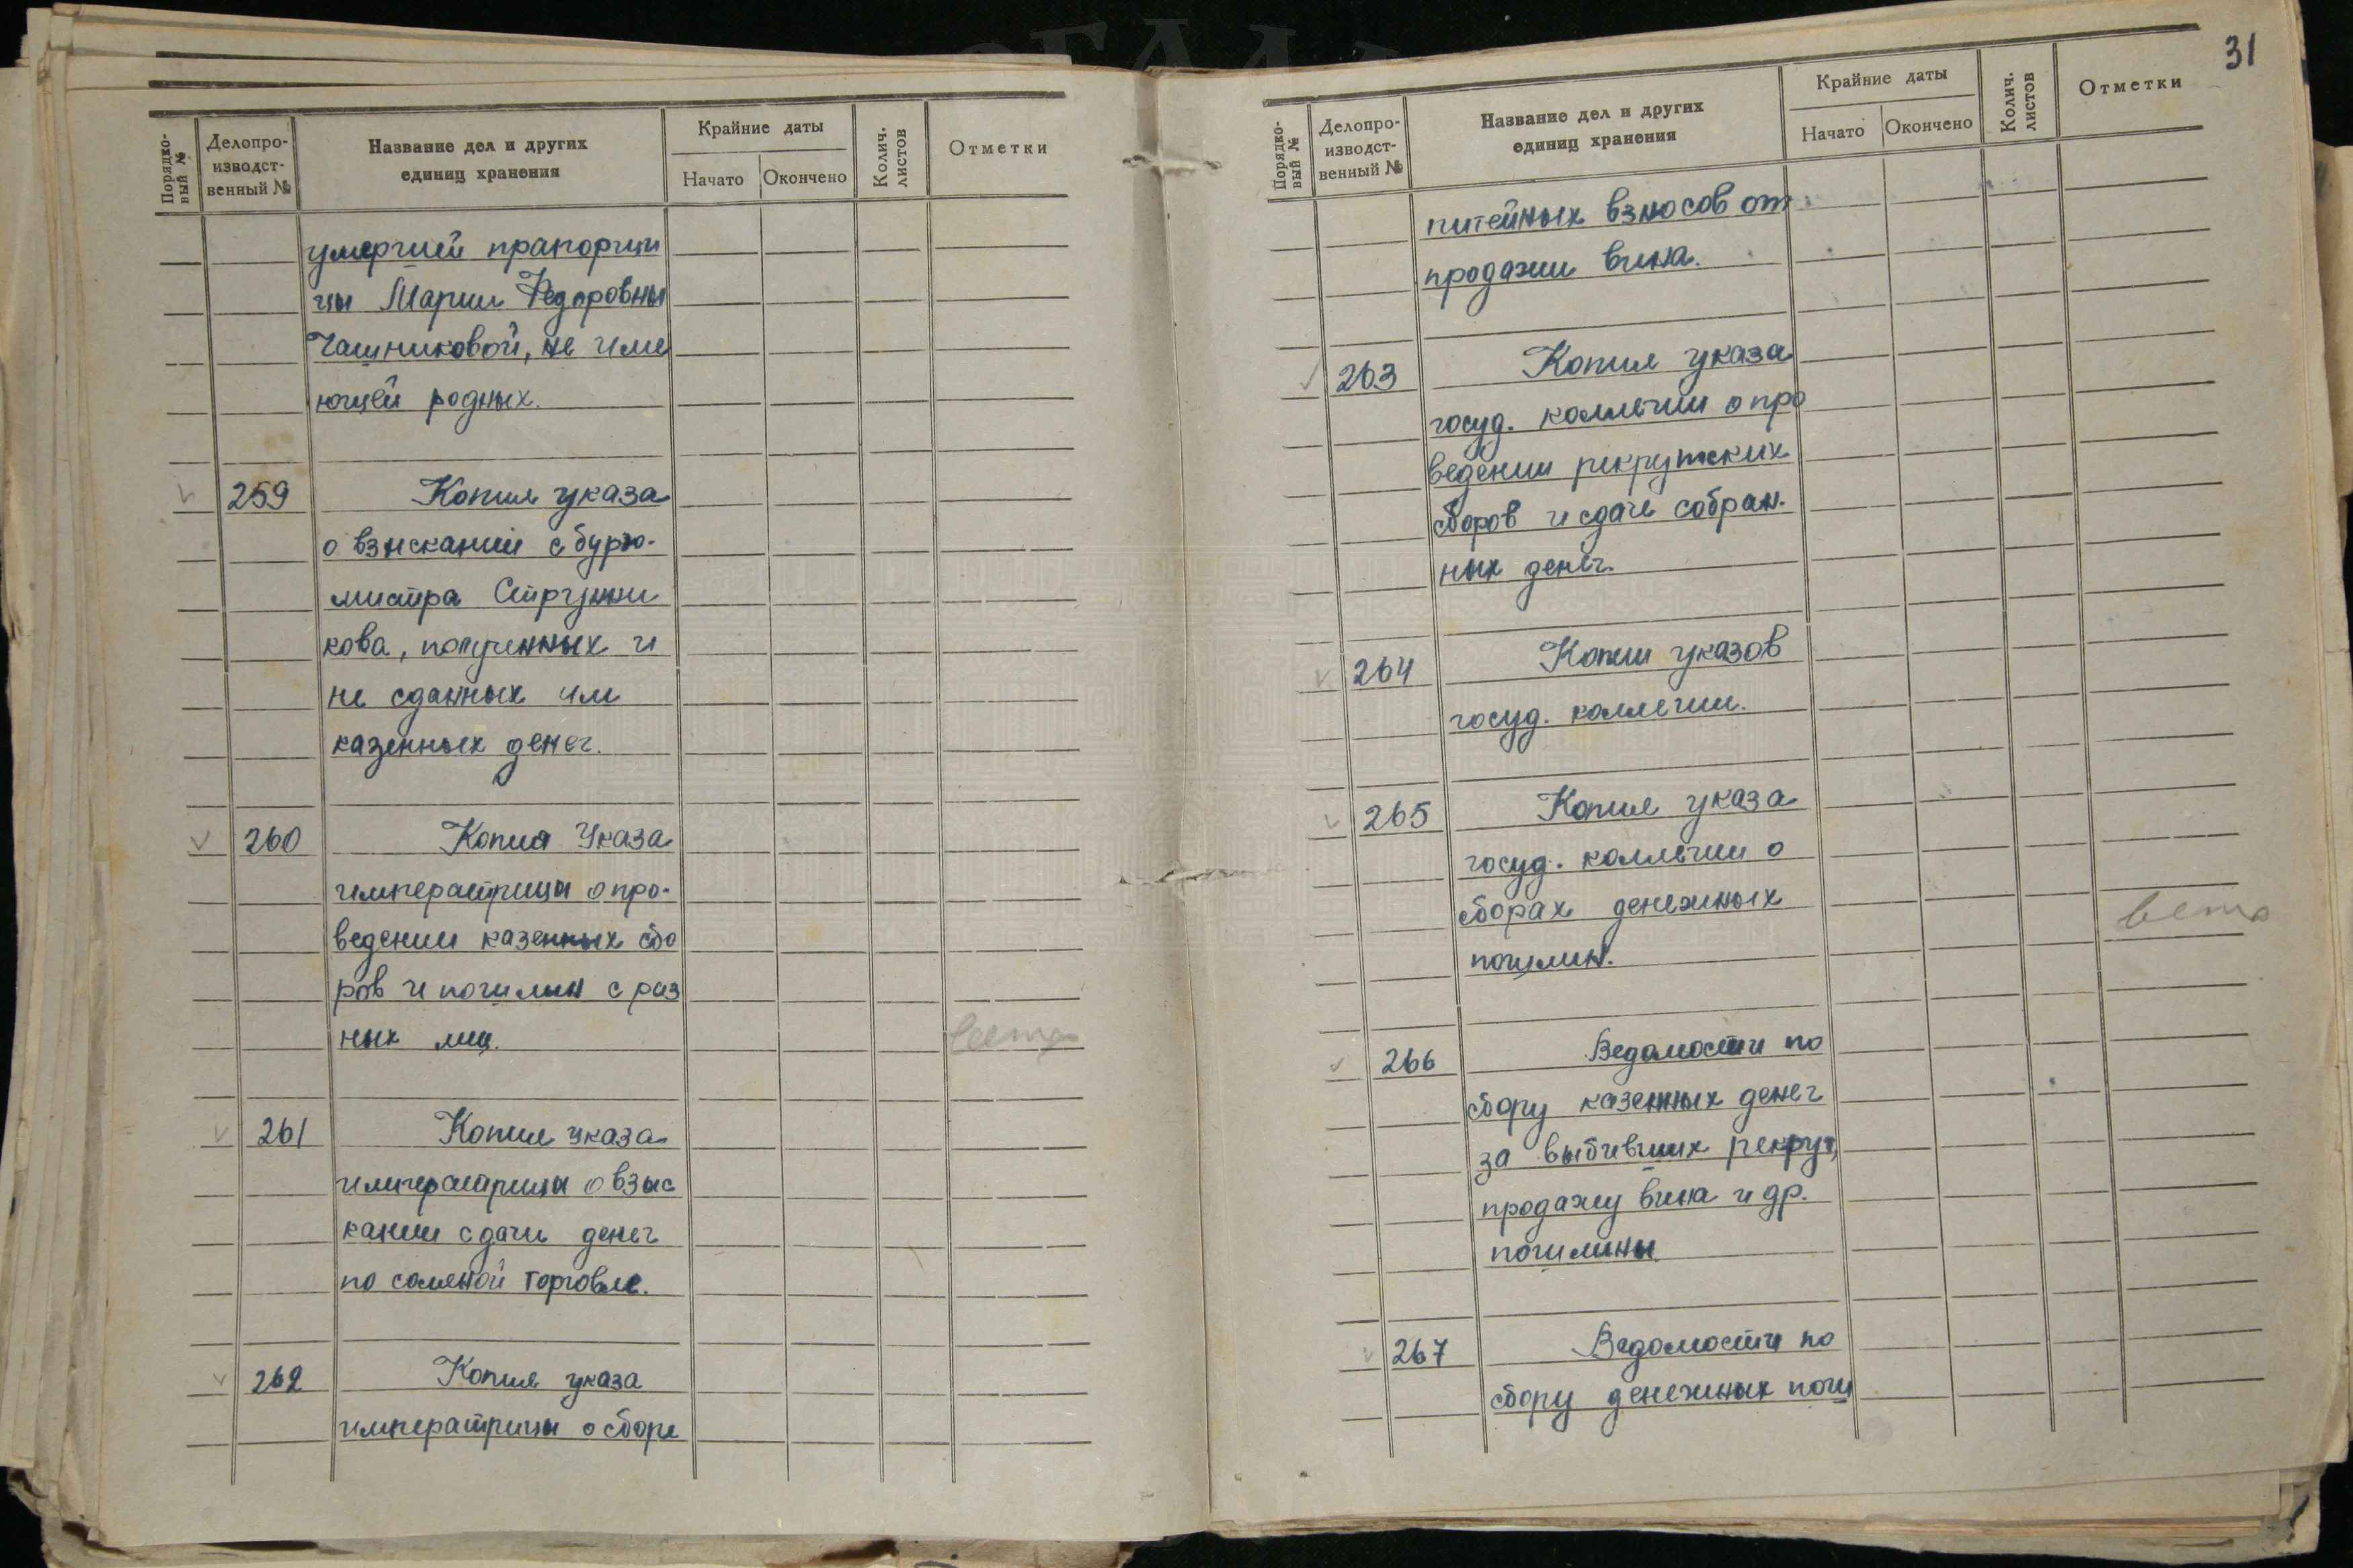 Порядко-
вый №
Делопро-
изводст-
венный №
Название дел и других
единиц хранения
Крайние даты
Начато
Окончено
Колич.
листов
Отметки
умершей прапорщи
цы Марии Федоровны
Чашниковой, не име
ющей родных.
259 Копия указа
о взыскании с бурго-
мистра Стружни
кова, полученных и
не сданных им
казенных денег.
260 Копия Указа
императрицы о про-
ведении казенных сбо
ров и пошлин с раз
ных лиц.
261 Копия указа
императрицы о взыс
кании сдачи денег
по соляной торговле.
262 Копия указа
императрицы о сборе
31
Порядко-
вый №
Делопро-
изводст-
венный №
Название дел и других
единиц хранения
Крайние даты
Начато
Окончено
Колич.
листов
Отметки
питейных взносов от
продажи вина.
263 Копия указа
госуд. коллегии о про
ведении рекрутских
сборов и сдаче собран.
ных денег.
264 Копии указов
госуд. коллегии.
265 Копия указа
госуд. коллегии о
сборах денежных
пошлин.
266 Ведомости по
сбору казенных денег
за выбивших рекрут,
продажу вина и др.
пошлины
267 Ведомости по
сбору денежных пош